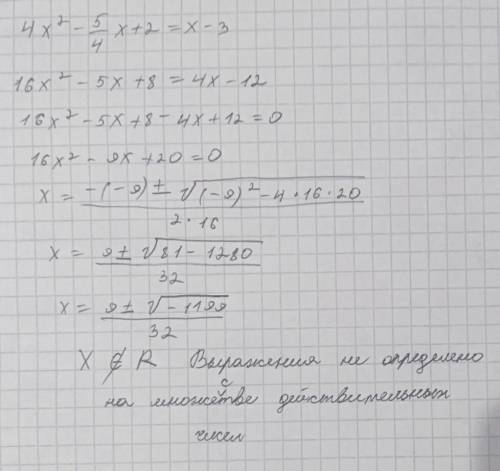 4x² - 5/4 x + 2 = x - 3
16x² - 5x + 8 = 4x - 12
16x² - 5x + 8 - 4x + 12 = 0
16x² - 9x + 20 = 0
x = (-(-9) ± √((-9)² - 4 · 16 · 20)) / (2 · 16)
x = (9 ± √(81 - 1280)) / 32
x = (9 ± √(-1199)) / 32
X ∉ R Выражения не определено
на множестве действительных
чисел